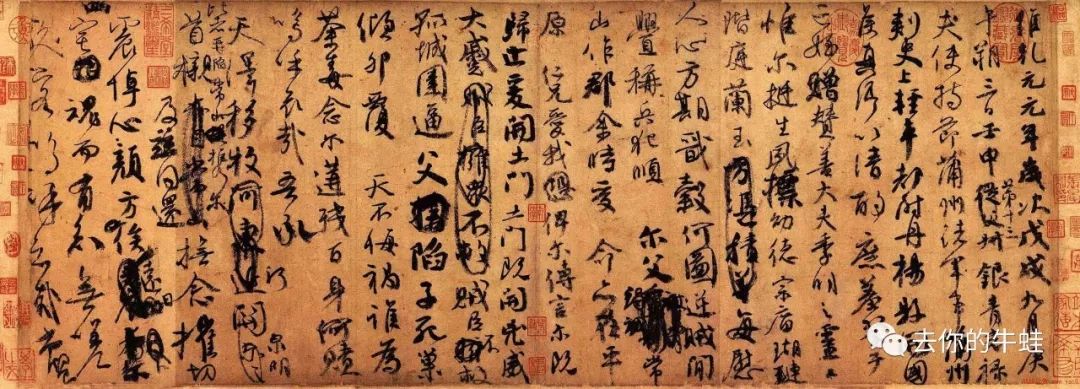 維乾元元年歲次戊戌九月庚
午朔三日壬申第十三從父銀青光祿
夫使持節蒲州諸軍事蒲州
刺史上輕車都尉丹楊縣開國
侯真卿以清酌庶羞祭于
亡姪贈贊善大夫季明之靈曰
惟爾挺生夙標幼德宗廟瑚璉
階庭蘭玉方憑積善每慰
人心方期戩穀何圖逆賊間
釁稱兵犯順爾父竭誠常
山作郡余時受命亦在平
原仁兄愛我俾爾傳言爾既
歸止爰開土門土門既開凶威
大蹙賊臣擁眾不救賊臣不救
孤城圍逼父陷子死巢
傾卵覆天不悔禍誰為
荼毒念爾遘殘百身何贖
嗚呼哀哉吾承
天澤移牧河關泉明
比者再陷常山攜爾
首櫬及茲同還撫念摧切
震悼心顏方俟遠日
宅魂而有知無嗟
久客嗚呼哀哉尚饗
去你的牛蛙